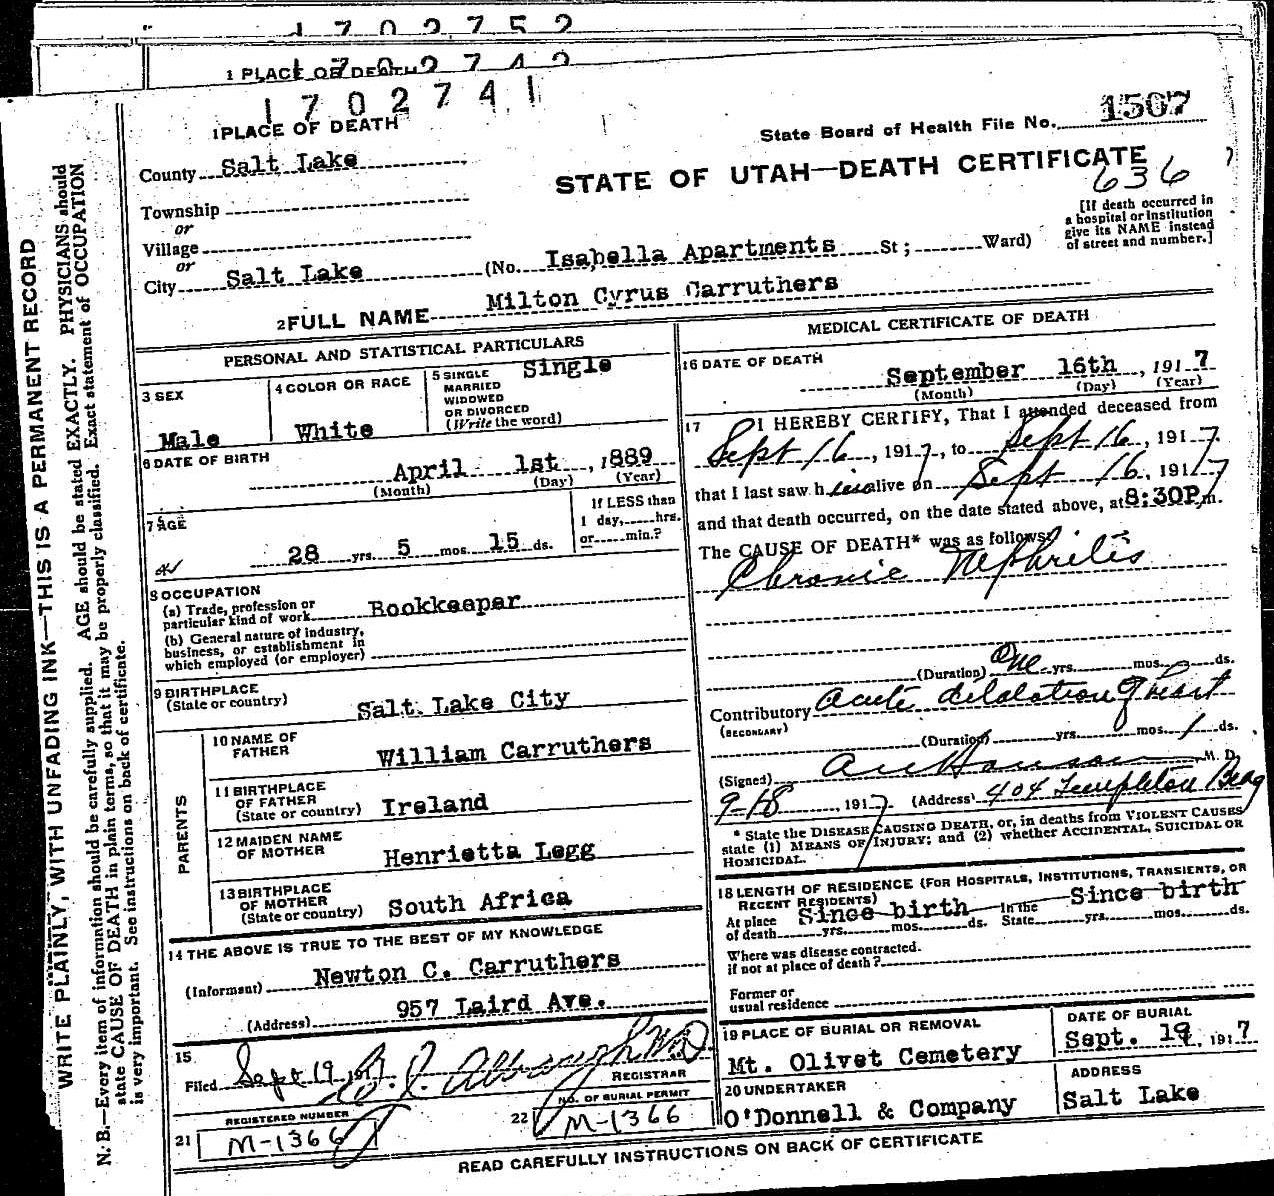 1 7 0 2 7 5 2
1 PLACE OF DEATH 1 7 0 2 7 4 2
1 7 0 2 7 4 1
1 PLACE OF DEATH
State Board of Health File No. 1507
County Salt Lake
STATE OF UTAH—DEATH CERTIFICATE
636
Township
or
Village
or
City Salt Lake (No. Isabella Apartments St; Ward)
[If death occurred in
a hospital or institution
give its NAME instead
of street and number.]
2 FULL NAME Milton Cyrus Carruthers
PERSONAL AND STATISTICAL PARTICULARS
3 SEX
Male
4 COLOR OR RACE
White
5 SINGLE
MARRIED
WIDOWED
OR DIVORCED
(Write the word)
Single
6 DATE OF BIRTH
April 1st, 1889
(Month) (Day) (Year)
7 AGE
28 yrs. 5 mos. 15 ds.
If LESS than
1 day,.....hrs.
or.....min.?
8 OCCUPATION
(a) Trade, profession or
particular kind of work Bookkeeper
(b) General nature of industry,
business, or establishment in
which employed (or employer)
9 BIRTHPLACE
(State or country) Salt Lake City
PARENTS
10 NAME OF
FATHER William Carruthers
11 BIRTHPLACE
OF FATHER
(State or country) Ireland
12 MAIDEN NAME
OF MOTHER Henrietta Legg
13 BIRTHPLACE
OF MOTHER
(State or country) South Africa
14 THE ABOVE IS TRUE TO THE BEST OF MY KNOWLEDGE
(Informant) Newton C. Carruthers
(Address) 957 Laird Ave.
15
Filed Sept 19, 1917
REGISTRAR
REGISTERED NUMBER
21 M-1366
NO. OF BURIAL PERMIT
22 M-1366
MEDICAL CERTIFICATE OF DEATH
16 DATE OF DEATH
September 16th, 1917
(Month) (Day) (Year)
17 I HEREBY CERTIFY, That I attended deceased from
Sept 16, 1917, to Sept 16, 1917.
that I last saw him alive on Sept 16, 1917
and that death occurred, on the date stated above, at 8:30P.m.
The CAUSE OF DEATH* was as follows:
Chronic Nephritis
(Duration) One yrs. mos. ds.
Contributory Acute dilatation of heart
(SECONDARY)
(Duration) yrs. mos. 1 ds.
(Signed) M. D.
9-18, 1917. (Address) 404 Templeton Bldg
* State the DISEASE CAUSING DEATH, or, in deaths from VIOLENT CAUSES
state (1) MEANS OF INJURY; and (2) whether ACCIDENTAL, SUICIDAL OR
HOMICIDAL.
18 LENGTH OF RESIDENCE (FOR HOSPITALS, INSTITUTIONS, TRANSIENTS, OR
RECENT RESIDENTS)
At place Since birth In the Since birth
of death yrs. mos. ds. State yrs. mos. ds.
Where was disease contracted.
if not at place of death?
Former or
usual residence
19 PLACE OF BURIAL OR REMOVAL
Mt. Olivet Cemetery
DATE OF BURIAL
Sept. 19, 1917
20 UNDERTAKER
O'Donnell & Company
ADDRESS
Salt Lake
READ CAREFULLY INSTRUCTIONS ON BACK OF CERTIFICATE
WRITE PLAINLY, WITH UNFADING INK—THIS IS A PERMANENT RECORD
N. B.—Every item of information should be carefully supplied. AGE should be stated EXACTLY. PHYSICIANS should
state CAUSE OF DEATH in plain terms, so that it may be properly classified. Exact statement of OCCUPATION
is very important. See instructions on back of certificate.